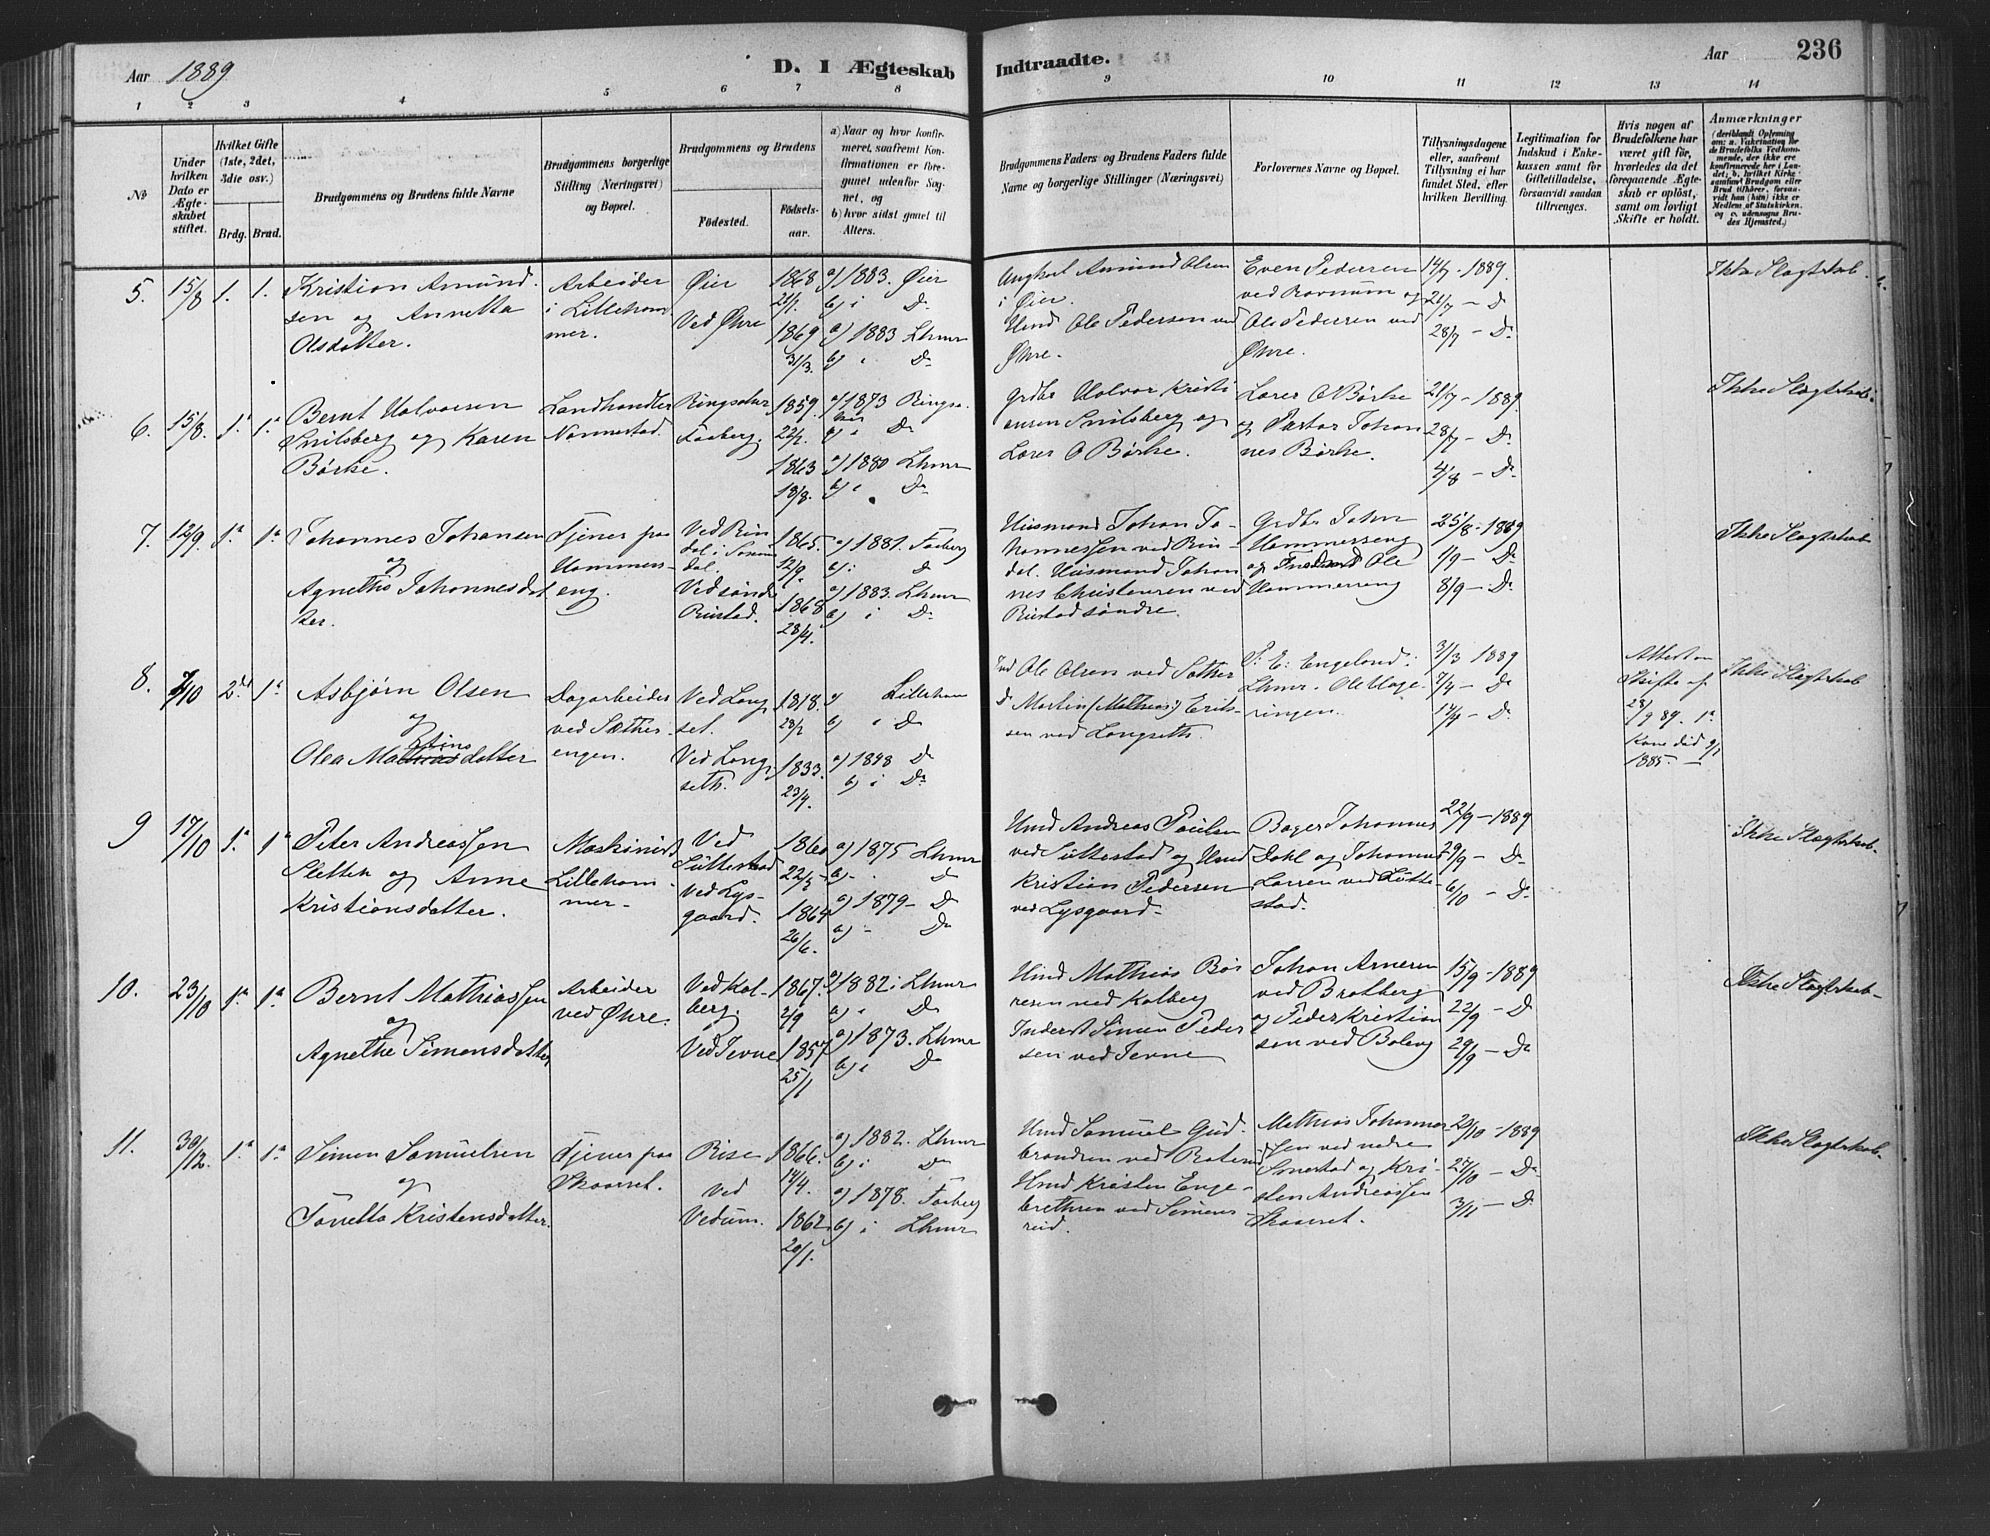 Aar 1889
D. I Ægteskab
Indtraadte.
Aar
236
1 2 3 4 5 6 7 8 9 10 11 12 13 14
No
Under
hvilken
Dato er
Ægte-
skabet
stiftet.
Hvilket Gifte
(1ste, 2det,
3die osv.)
Brdg. Brud.
Brudgommens og Brudens fulde Navne
Brudgommens borgerlige
Stilling (Næringsvei)
og Bopæl.
Brudgommens og Brudens
Födested.
Födsels-
aar.
a) Naar og hvor konfir-
meret, saafremt Kon-
firmationen er fore-
gaaet udenfor Sog-
net, og
b) hvor sidst gaaet til
Alters.
Brudgommens Faders og Brudens Faders fulde
Navne og borgerlige Stillinger (Næringsvei)
Forlovernes Navne og Bopæl.
Tillysningsdagene
eller, saafremt
Tillysning ei har
fundet Sted, efter
hvilken Bevilling.
Legitimation for
Indskud i Enke-
kassen samt for
Giftetilladelse,
forsaavidt saadan
tiltrænges.
Hvis nogen af
Brudefolkene har
været gift för,
hvorledes da det
foregaaende Ægte-
skab er oplöst,
samt om lovligt
Skifte er holdt.
Anmærkninger
5. 15/8 1. 1.
Kristian Amund-
sen og Annetta
Olsdatter.
Arbeider
i Lilleham-
mer.
Øier
Ved Øhre
1868
21/1.
1869
31/3.
a) 1883. Øier
b) i D
a) 1883 Lhmr
b) i D
Ungkarl Amund Olsen
i Øier.
Hmd Ole Pedersen ved
Øhre.
Even Pedersen
ved Ravnum og
Ole Pedersen ved
Øhre.
14/7 - 1889.
21/7 - D
28/7 - D
Ikke Slagtskab.
6. 15/8. 1. 1.
Bernt Halvorsen
Snilsberg og Karen
Børke.
Landhandler
Nannestad.
Ringsaker
Faaberg.
1859.
22/2.
1863
18/8.
a) 1873 Ringsa-
ker
b) i D
a) 1880 Lhmr
b) i D
Grdbr Halvor Kristi-
ansen Snilsberg og
Lærer O Børke.
Lærer O Børke
og Pastor Johan-
nes Børke.
21/7 - 1889.
28/7 - D
4/8 - D
Ikke Slagtskab.
7. 12/9. 1. 1.
Johannes Johansen
og
Agnethe Johannesdat
ter.
Tjener paa
Hammers-
eng.
Ved Rin
dal i
dal.
Ved søndr
Rustad.
1865.
12/9.
1868
28/4.
a) 1881. Faaberg
b) i D
a) 1883. Lhmr
b) i D
Husmand Johan Jo-
hannessen ved Rin-
dal. Husmand Johan
nes Christensen ved
Rustad søndre.
Grdbr John
Hammerseng
og Ole
Hammerseng
25/8 - 1889
1/9 - D
8/9 - D
Ikke Slagtskab
8. 7/10 2. 1.
Asbjørn Olsen
og
Olea Matinsdatter
Dagarbeider
ved Sæther-
engen.
Ved Lang-
set.
Ved Lang-
seth.
1818.
23/2
1833.
23/4.
a) Lilleham
b) i D
a) 1848 D
b) i D
Ind Ole Olsen ved Sæther
D Martin (Mathias) Erik-
sen ved Langseth.
P. E. Engeland
Lhmr. Ole Hage-
ringen.
31/3 1889
7/4 - D
14/4 - D
Attest om
Skifte af
28/9 89. 1.
Kone død 9/1
1885.
Ikke Slagtskab
9 17/10 1. 1
Peter Andreassen
Sletten og Anne
Kristiansdatter.
Maskinist
Lilleham
mer-
Ved
Suttestad
ved Lys-
gaard.
1860
22/3-
1864
26/6.
a) 1875 Lhmr
b) - D
a) 1879 - D
b) - D
Hmd Andreas Paulsen
ved Suttestad og Hmd
Kristian Pedersen
ved Lysgaard-
Bager Johannes
Dahl og Johannes
Larsen ved Sutte-
stad.
22/9 - 1889
29/9 - D
6/10 - D
Ikke Slagtskab.
10. 23/10 1. 1.
Bernt Mathiassen
og
Agnethe Simensdatter
Arbeider
ved Øhre.
Ved Kol-
berg.
Ved Jevne
1867.
2/9
1857
25/1
a) 1882 i Lhmr
b) i D
a) 1873. Lhmr
b) i D
Hmd Mathias Bør
resen ved Kolberg
Inderst Simen Peder
sen ved Jevne
Johan Arnesen
ved Bratberg
og Peder Kristian
sen ved Boleng
15/9 - 1889
22/9 - D
29/9 - D
Ikke Slagtskab-
11. 30/12. 1. 1.
Simen Samuelsen
og
Tonetta Kristensdatter.
Tjener paa
Skaaret.
Rise
Ved
Vedum.
1866.
14/4.
1862
20/1.
a) 1882. Lhmr
b) i D
a) 1878. Faaberg
b) i Lhmr
Hmd Samuel Gud-
brandsen ved
Hmd Kristen Enge-
brethsen ved Simens-
reid.
Mathias Johannes
sen ved nedre
Smestad og Kri-
sten Andreassen
Skaaret.
20/10 - 1889
27/10 - D
3/11 - D
Ikke Slagtskab.